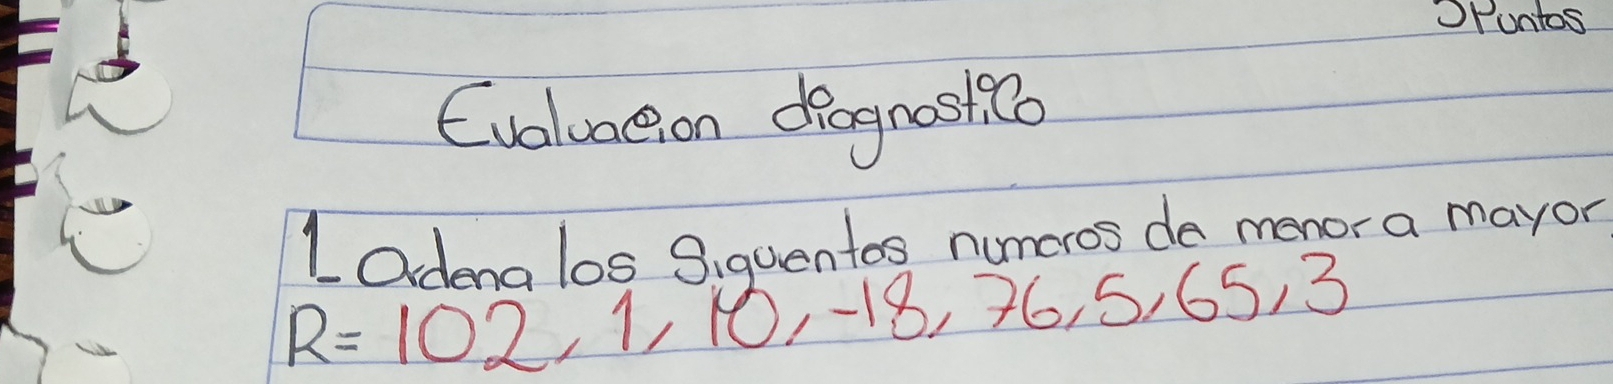 5 Puntos
Evaluacion diagnostico
1 Ordena los Siguentes numeros de menor a mayor.
R= 102, 1, 10, -18, 76, 5, 65, 3